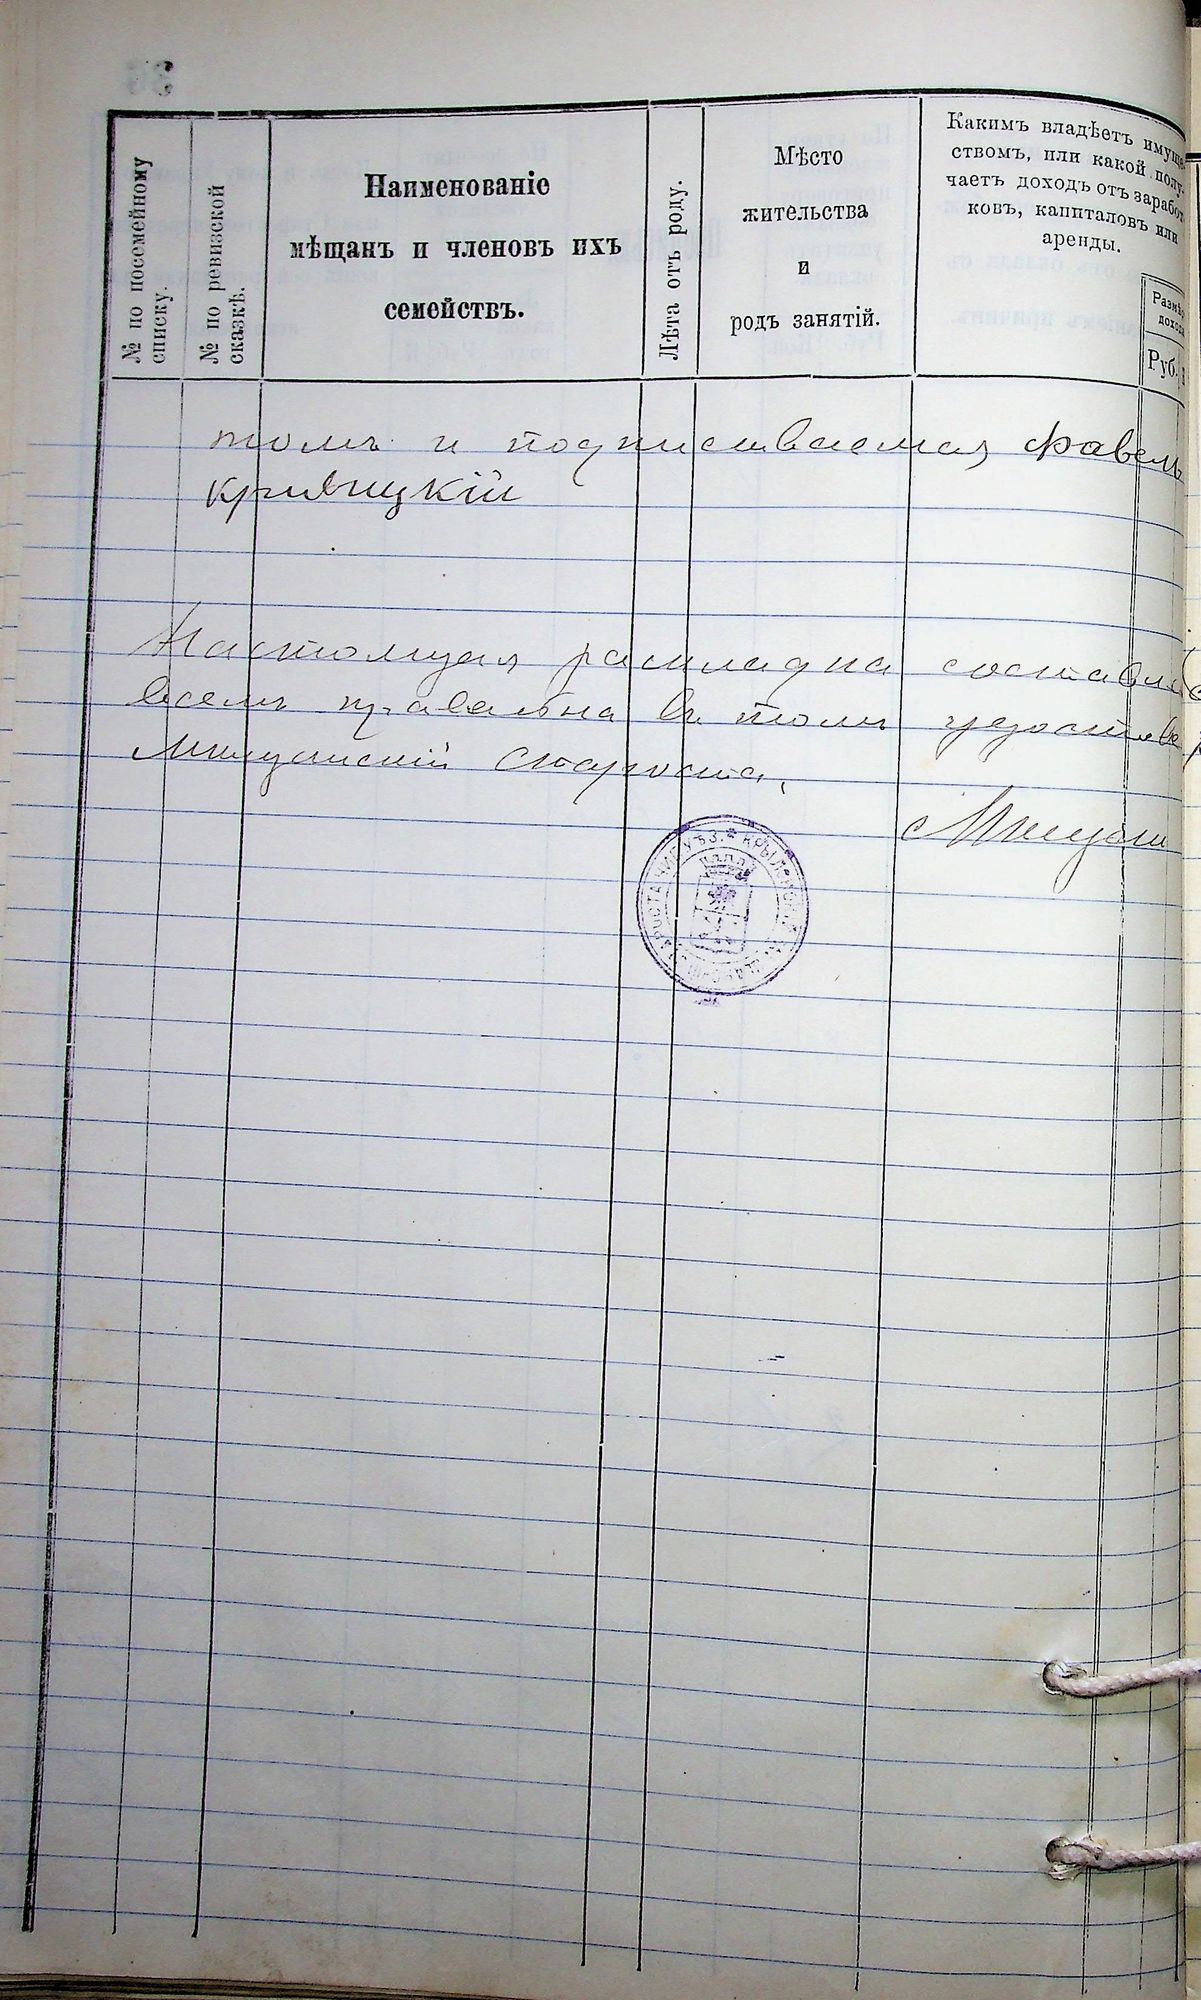 № по посемейному
списку.
№ по ревизской
сказкѣ.
Наименованіе
мѣщанъ и членовъ ихъ
семействъ.
Лѣта отъ роду.
Мѣсто
жительства
и
родъ занятій.
Какимъ владѣетъ имуще-
ствомъ, или какой полу-
чаетъ доходъ отъ заработ
ковъ, капиталовъ или
аренды.
Размѣ
дохода
Руб.
томъ и подписываемся
Кривицкій
Настоящая раскладка составле
всемъ правельна въ томъ
Мищанскій Староста,